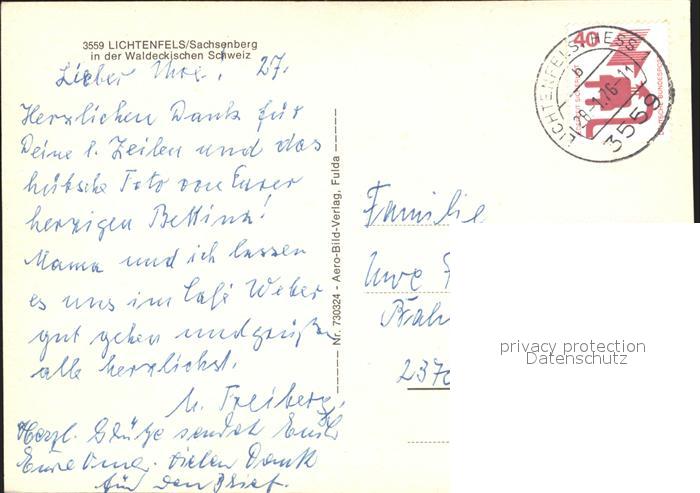 3559 LICHTENFELS/Sachsenberg
in der Waldeckischen Schweiz
Lieber Uwe! 27.
Herzlichen Dank für
Deine l. Zeilen und das
hübsche Foto von Eurer
herzigen Bettina!
Mama und ich lassen
es uns im Café Weber
gut gehen und grüßen
alle herzlichst.
M. Freiberg.
Herzl. Grüße sendet Euch
Eure Oma. Vielen Dank
für den Brief.
Nr. 730324 - Aero-Bild-Verlag, Fulda
LICHTENFELS, HESS
b
28.-1.76-11
3559
40
DEUTSCHE BUNDESPOST
Familie
Uwe
237
privacy protection
Datenschutz